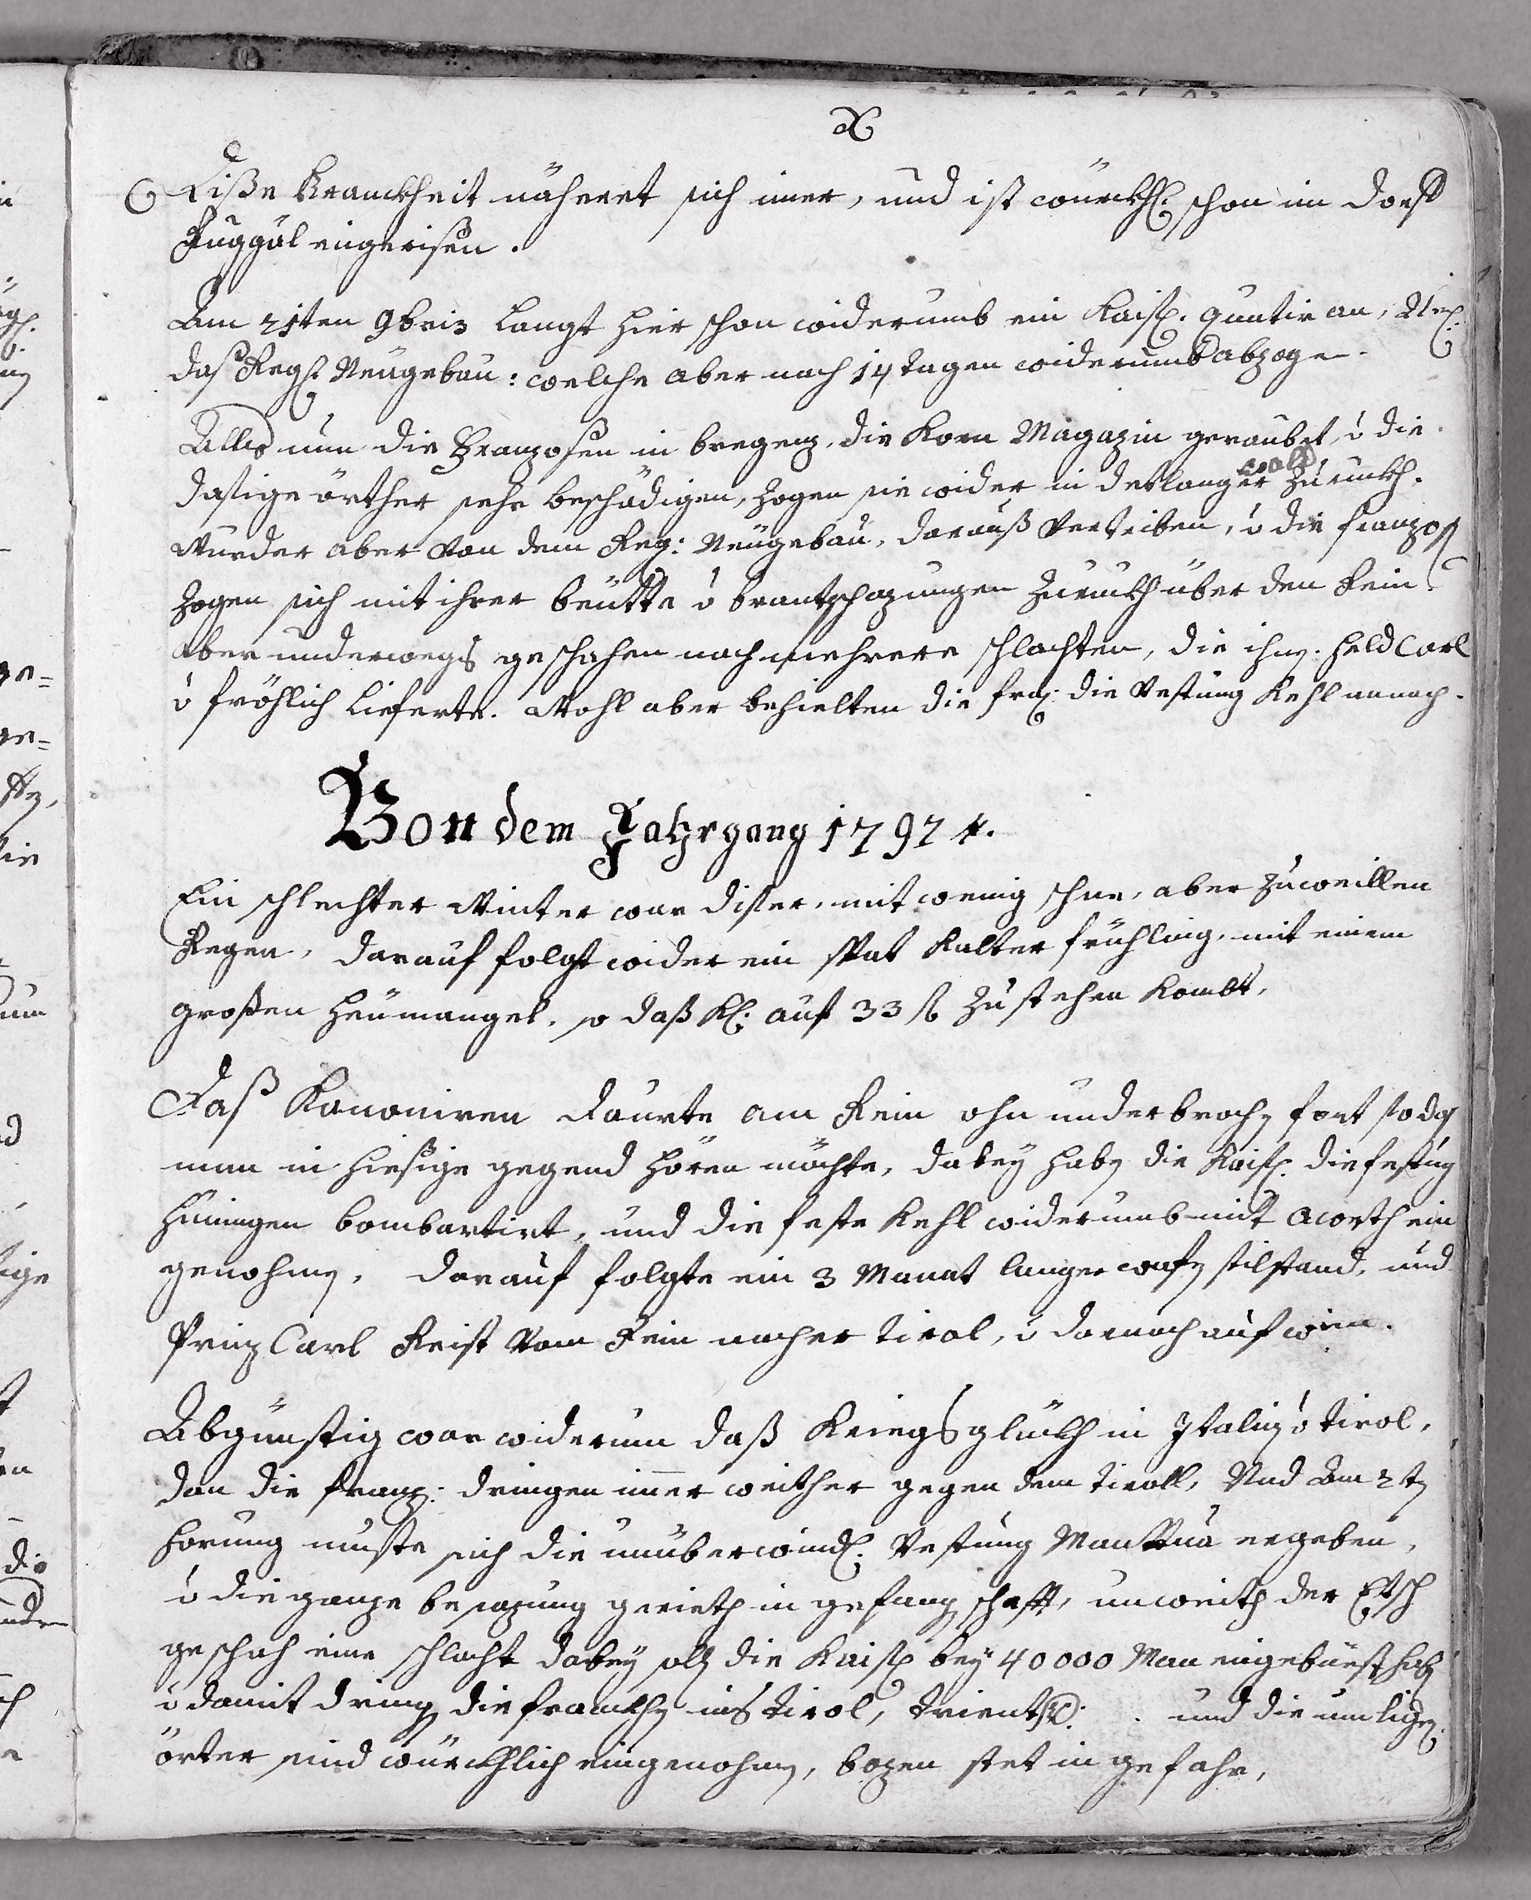 X
Diße Kranckheit näheret sich imer, und ist würckhl: schon im dorf
Ruggöl eingerisen.
Am 21ten 9bris langt hier schon widerumb ein Kaisl. quatir an,
das Regt Neügebau: welche aber nach 14 tagen widerumb abzoge.
Alles nun die Franzosen in bregenz, die Korn Magazin geraubet, ů die
dasige örther sehr beschädigen, zogen sie wider in Lang wald zuruckh.
Wurder aber von dem Reg: Neugebau, darauß vertriben, ů die franzos
zogen sich mit ihrer beütte ů brantschazungen zuruckh über den Rein
aber underwegs geschahen noch mehrere schlachten, die ihnen held Carl
ů fröhlich Lieferte. Wohl aber behielten die frz: die Vestung Kehl annoch.
Von dem Jahrgang 1797
Ein schlechter Winter war diser, mit wenig schne, aber zuweillen
Regen, darauf folgt wider ein spat Kalter frühling, mit einem
großen heümangel, so daß Kl: auf 33 fl zu stehen Kombt,
Daß Kanoniren daurte am Rein ohn underbrochen fort so das
man in hiesige gegend hören möchte, dabey haben die Kaisl. die festung
Huningen bombartirt, und die feste Kehl widerumb mit acorth ein
genohmen, darauf folgte ein 3 Manat langer wafen stilstand, und
Prinz Carl Reist vom Rein nacher tirol, ů darnach auf wien.
Abgünstig war widerum daß Kriegsglückh in Italien ů tirol,
dan die franz: dringen imer weither gegen dem tiroll, Und Am 2ten
hornung muste sich die unüberwindl. Vestung Manttua ergeben,
ů die ganze besazung gerieth in gefangschafft, unweith der Etsch
geschah eine schlacht dabey solen die Kaisl bey 40000 Man eingebüest haben
ů damit dringen die franckhen ins tirol, trient . und die umligen:
örter sind würckhlich eingenohmen, bozen stet in gefahr,